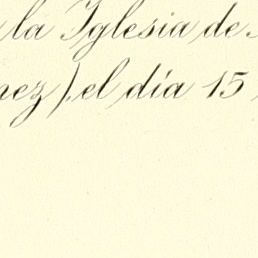 la Iglesia de
nez), el día 15